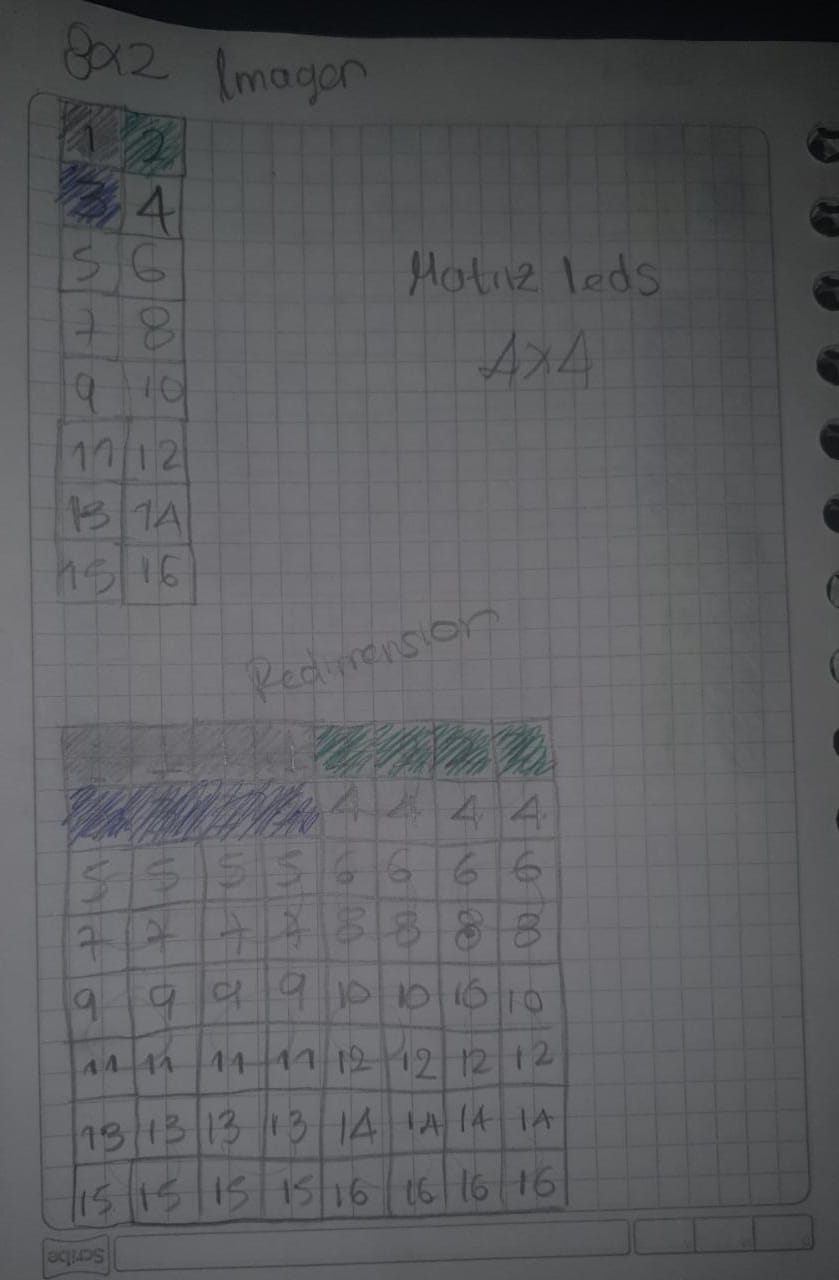 8x2 Imagen
1 2
3 4
5 6
7 8
9 10
11 12
13 14
15 16
Matriz leds
4x4
Redimension
1 1 1 1
4 4 4 4
5 5 5 5 6 6 6 6
7 7 7 7 8 8 8 8
9 9 9 9 10 10 10 10
11 11 11 11 12 12 12 12
13 13 13 13 14 14 14 14
15 15 15 15 16 16 16 16
Scribe